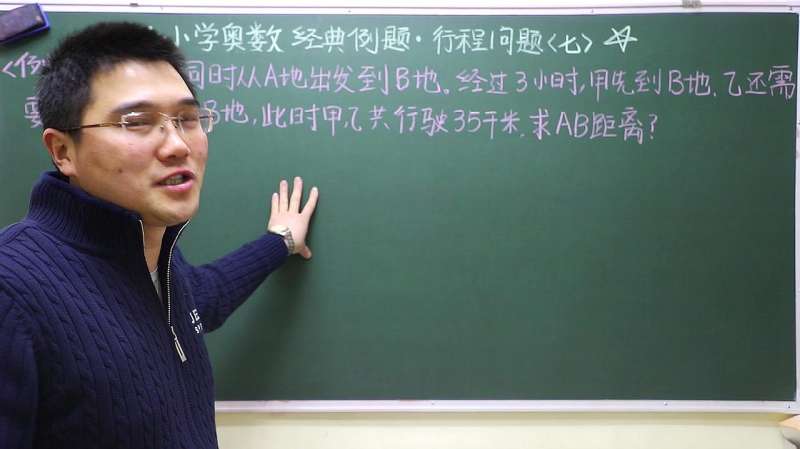 小学奥数 经典例题·行程问题<七>☆
<例 同时从A地出发到B地。经过3小时,甲先到B地,乙还需
要 B地,此时甲,乙共行驶35千米,求AB距离?
JE